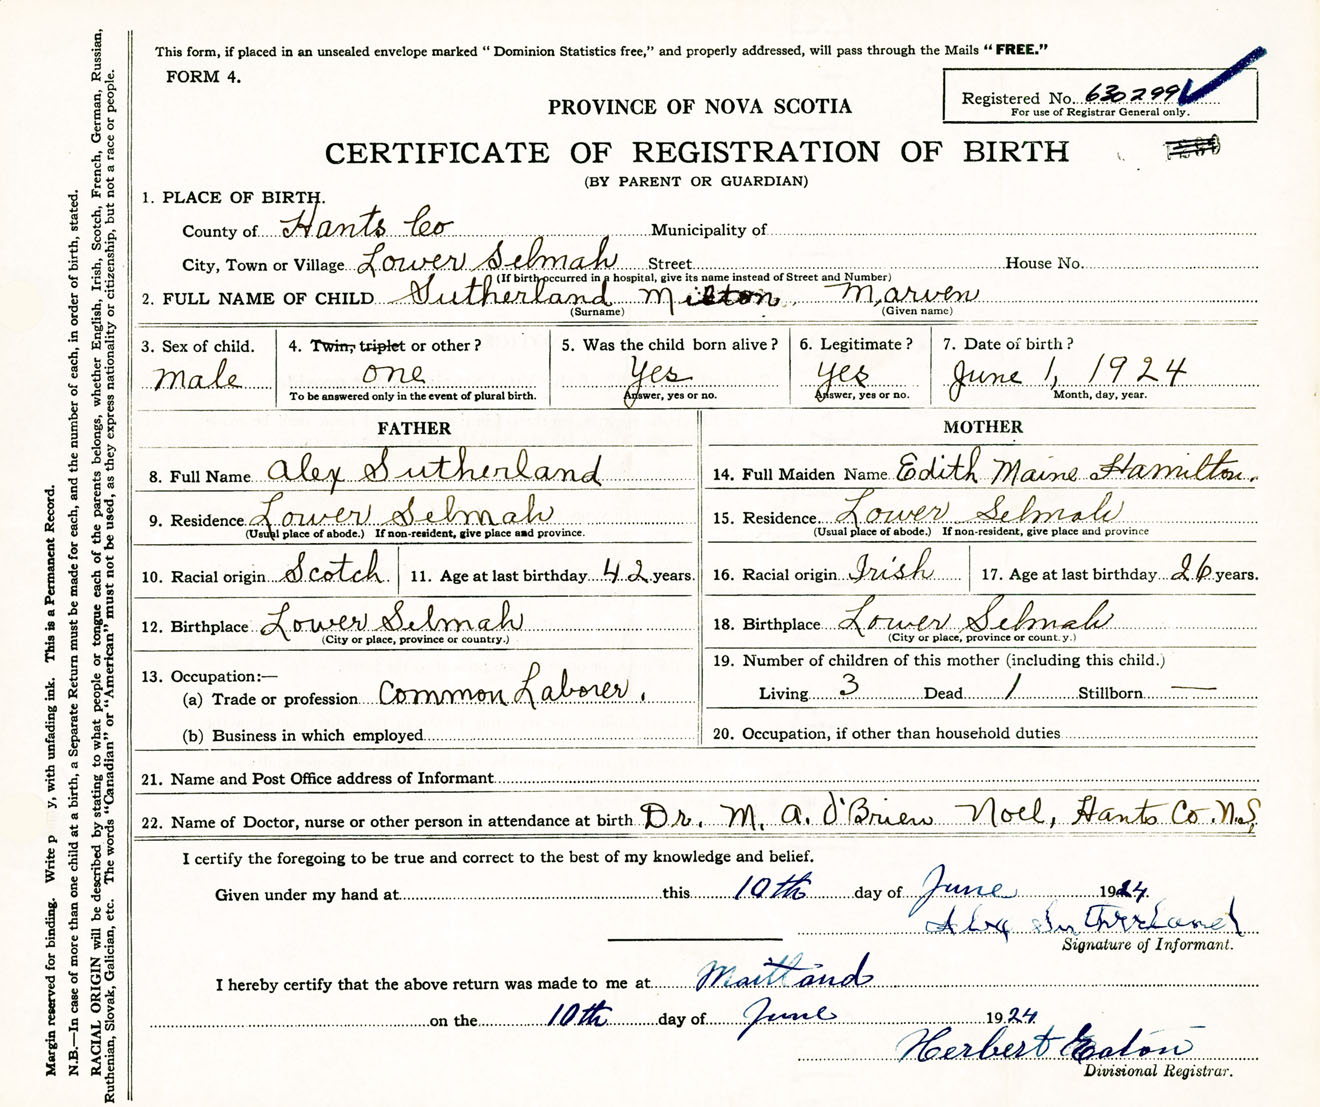 This form, if placed in an unsealed envelope marked "Dominion Statistics free," and properly addressed, will pass through the Mails "FREE."
FORM 4.
Registered No. 630299
For use of Registrar General only.
PROVINCE OF NOVA SCOTIA
CERTIFICATE OF REGISTRATION OF BIRTH
(BY PARENT OR GUARDIAN)
1. PLACE OF BIRTH.
County of Hants Co Municipality of
City, Town or Village Lower Selmah Street House No.
(If birth occurred in a hospital, give its name instead of Street and Number)
2. FULL NAME OF CHILD Sutherland Milton Marven
(Surname) (Given name)
3. Sex of child. 4. Twin, triplet or other? 5. Was the child born alive? 6. Legitimate? 7. Date of birth?
Male one Yes yes June 1, 1924
To be answered only in the event of plural birth. Answer, yes or no. Answer, yes or no. Month, day, year.
FATHER
8. Full Name Alex Sutherland
9. Residence Lower Selmah
(Usual place of abode.) If non-resident, give place and province.
10. Racial origin Scotch 11. Age at last birthday 42 years.
12. Birthplace Lower Selmah
(City or place, province or country.)
13. Occupation:—
(a) Trade or profession Common Laborer.
(b) Business in which employed
MOTHER
14. Full Maiden Name Edith Maine Hamilton.
15. Residence Lower Selmah
(Usual place of abode.) If non-resident, give place and province
16. Racial origin Irish 17. Age at last birthday 26 years.
18. Birthplace Lower Selmah
(City or place, province or count.y.)
19. Number of children of this mother (including this child.)
Living 3 Dead 1 Stillborn —
20. Occupation, if other than household duties
21. Name and Post Office address of Informant
22. Name of Doctor, nurse or other person in attendance at birth Dr. M. A. O'Brien Noel, Hants Co. N.S,
I certify the foregoing to be true and correct to the best of my knowledge and belief.
Given under my hand at this 10th day of June 1924
Alex Sutherland
Signature of Informant.
I hereby certify that the above return was made to me at Maitland
on the 10th day of June 1924
Herbert Eaton
Divisional Registrar.
Margin reserved for binding. Write p y, with unfading ink. This is a Permanent Record.
N.B.—In case of more than one child at a birth, a Separate Return must be made for each, and the number of each, in order of birth, stated.
RACIAL ORIGIN will be described by stating to what people or tongue each of the parents belongs, whether English, Irish, Scotch, French, German, Russian,
Ruthenian, Slovak, Galician, etc. The words "Canadian" or "American" must not be used, as they express nationality or citizenship, but not a race or people.